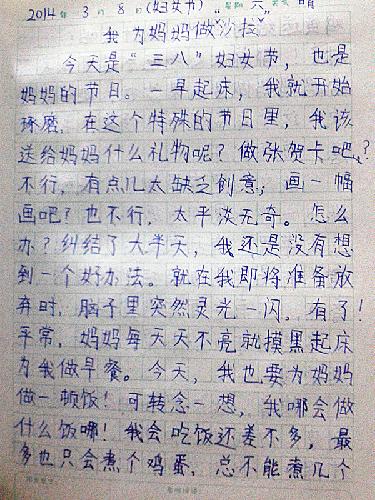 2014年 3月 8日(妇女节) 星期 六 天气 晴
我为妈妈做"沙拉"
今天是"三八"妇女节，也是
妈妈的节日。一早起床，我就开始
琢磨，在这个特殊的节日里，我该
送给妈妈什么礼物呢？做张贺卡吧？
不行，有点儿太缺乏创意；画一幅
画吧？也不行，太平淡无奇。怎么
办？纠结了大半天，我还是没有想
到一个好办法。就在我即将准备放
弃时，脑子里突然灵光一闪，有了！
平常，妈妈每天天不亮就摸黑起床
为我做早餐。今天，我也要为妈妈
做一顿饭！可转念一想，我哪会做
什么饭哪！我会吃饭还差不多，最
多也只会煮个鸡蛋，总不能煮几个